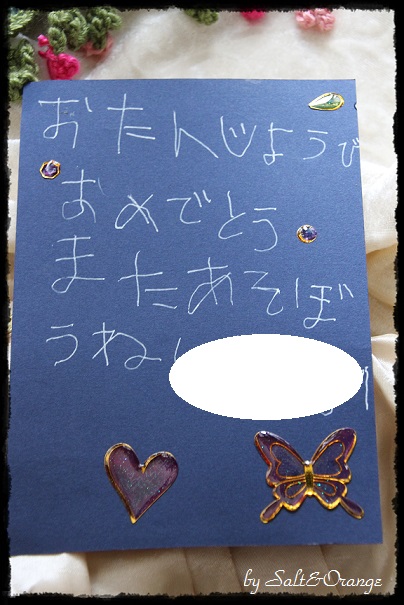 おたんじょうび
おめでとう
またあそぼ
うね
by Salt&Orange